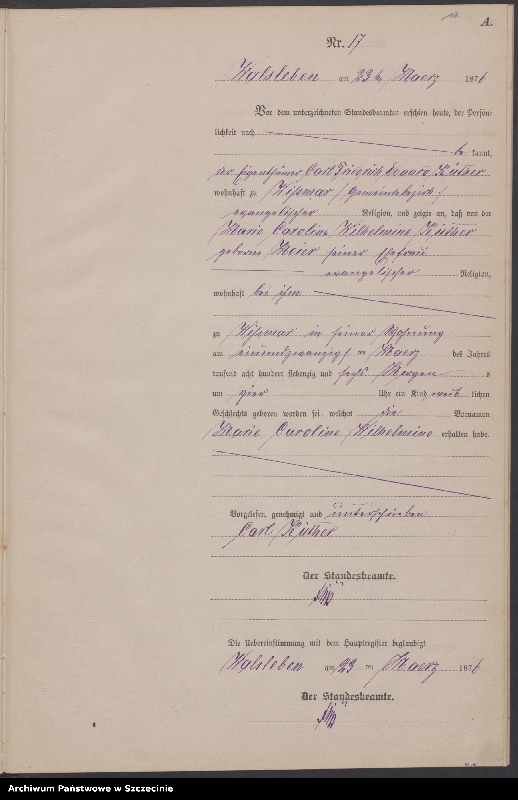 12
A.
Nr. 17
Walsleben am 23ten Maerz 1876
Vor dem unterzeichneten Standesbeamten erschien heute, der Persön-
lichkeit nach
be kannt,
der Eigenthümer Carl Friedrich Eduard Küther
wohnhaft zu Wismar (Gemeindebezirk)
evangelischer Religion, und zeigte an, daß von der
Marie Caroline Wilhelmine Küther
geborene Meier seiner Ehefrau
evangelischer Religion,
wohnhaft bei ihm
zu Wismar in seiner Wohnung
am einundzwanzigsten Maerz des Jahres
tausend acht hundert siebenzig und sechs Morgens
um vier Uhr ein Kind weib lichen
Geschlechts geboren worden sei, welches die Vornamen
Marie Caroline Wilhelmine erhalten habe.
Vorgelesen, genehmigt und unterschrieben
Carl Küther
Der Standesbeamte.
Die Uebereinstimmung mit dem Hauptregister beglaubigt
Walsleben am 23 ten Maerz 1876
Der Standesbeamte.
Archiwum Państwowe w Szczecinie